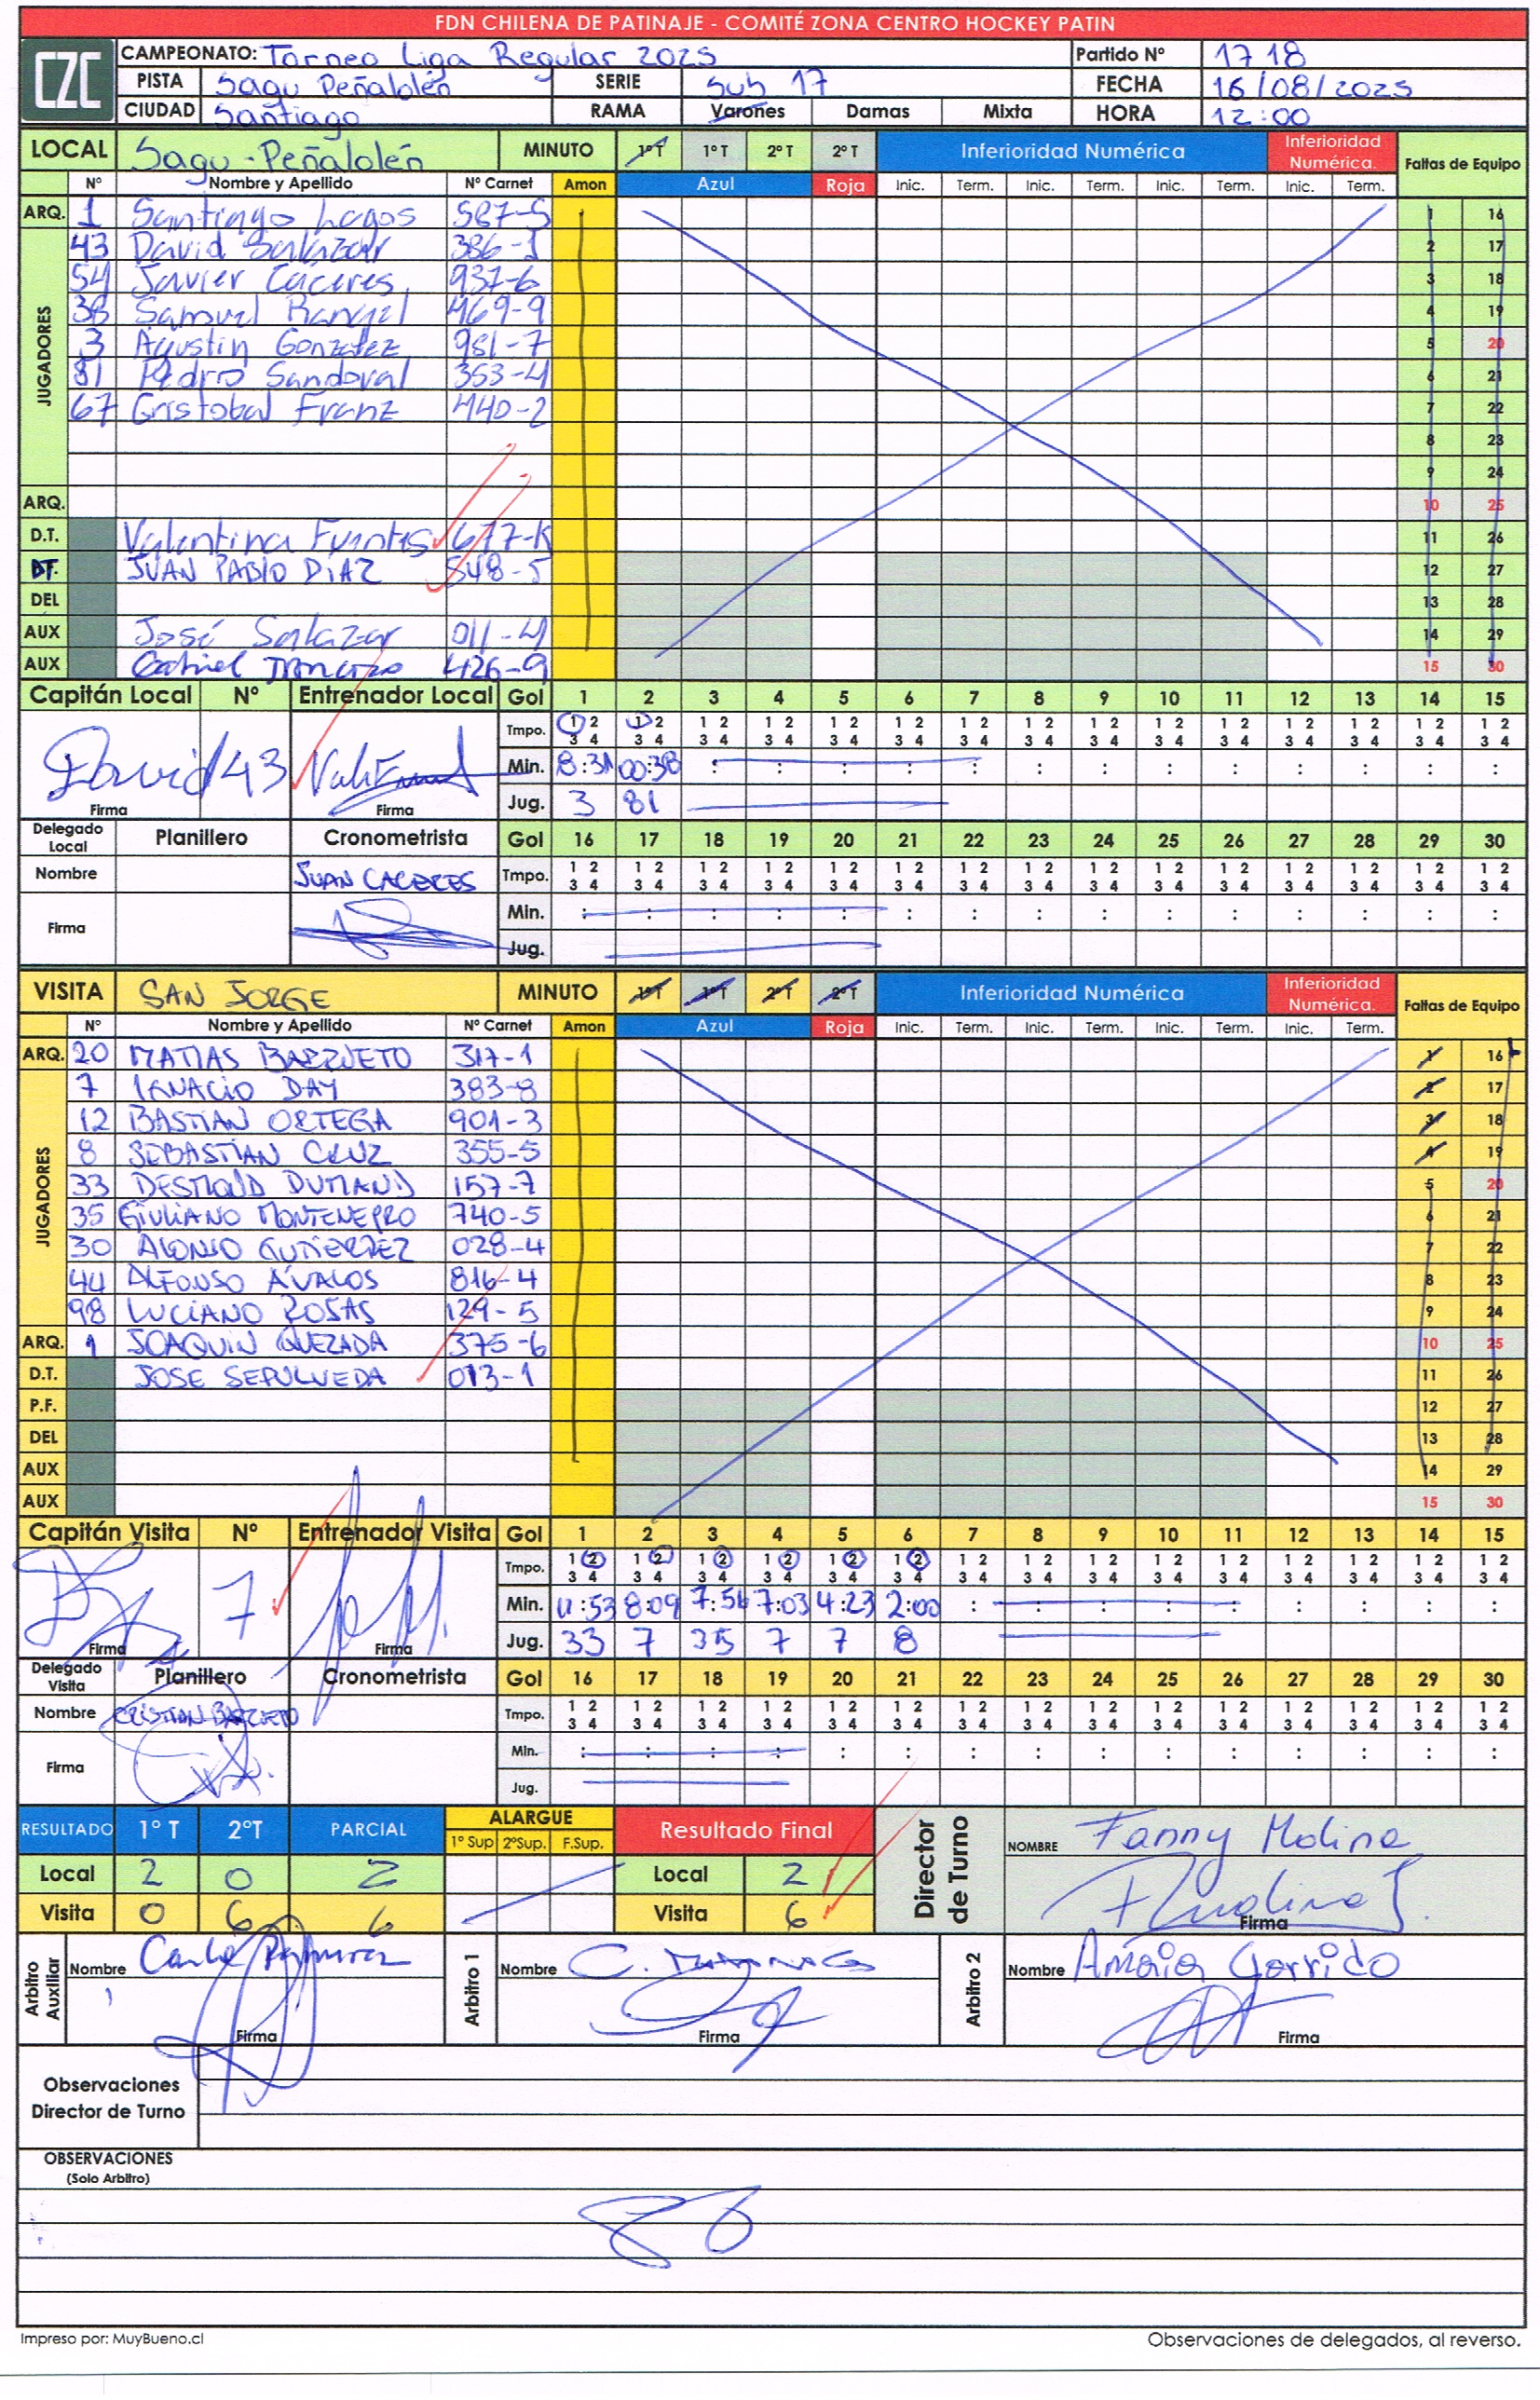 FDN CHILENA DE PATINAJE - COMITÉ ZONA CENTRO HOCKEY PATIN
CZC
CAMPEONATO: Torneo Liga Regular 2025 Partido Nº 1718
PISTA Sagu Peñalolén SERIE Sub 17 FECHA 16/08/2025
CIUDAD Santiago RAMA Varones Damas Mixta HORA 12:00
LOCAL Sagu-Peñalolén MINUTO 1º T 1º T 2º T 2º T Inferioridad Numérica Inferioridad Numérica. Faltas de Equipo
Nº Nombre y Apellido Nº Carnet Amon Azul Roja Inic. Term. Inic. Term. Inic. Term. Inic. Term.
ARQ. 1 Santiago Lagos 587-5 1 16
JUGADORES
43 David Salazar 386-1 2 17
54 Javier Caceres 937-6 3 18
38 Samuel Rangel 469-9 4 19
3 Agustin Gonzalez 981-7 5 20
81 Pedro Sandoval 353-4 6 21
67 Cristobal Franz 440-2 7 22
8 23
9 24
ARQ. 10 25
D.T. Valentina Fuentes 677-K 11 26
DT. JUAN PABLO DIAZ 548-5 12 27
DEL 13 28
AUX José Salazar 011-4 14 29
AUX 426-9 15 30
Capitán Local Nº Entrenador Local Gol 1 2 3 4 5 6 7 8 9 10 11 12 13 14 15
Tmpo. 1 2 1 2 1 2 1 2 1 2 1 2 1 2 1 2 1 2 1 2 1 2 1 2 1 2 1 2 1 2
3 4 3 4 3 4 3 4 3 4 3 4 3 4 3 4 3 4 3 4 3 4 3 4 3 4 3 4 3 4
David 43 Min. 8:31 00:38 : : : : : : : : : : : : :
Firma Firma Jug. 3 81
Delegado Local Planillero Cronometrista Gol 16 17 18 19 20 21 22 23 24 25 26 27 28 29 30
Nombre JUAN CACERES Tmpo. 1 2 1 2 1 2 1 2 1 2 1 2 1 2 1 2 1 2 1 2 1 2 1 2 1 2 1 2 1 2
3 4 3 4 3 4 3 4 3 4 3 4 3 4 3 4 3 4 3 4 3 4 3 4 3 4 3 4 3 4
Firma Min. : : : : : : : : : : : : : : :
Jug.
VISITA SAN JORGE MINUTO 1º T 1º T 2º T 2º T Inferioridad Numérica Inferioridad Numérica. Faltas de Equipo
Nº Nombre y Apellido Nº Carnet Amon Azul Roja Inic. Term. Inic. Term. Inic. Term. Inic. Term.
ARQ. 20 MATIAS BARRUETO 317-1 1 16
JUGADORES
7 IGNACIO DAY 383-8 2 17
12 BASTIAN ORTEGA 901-3 3 18
8 SEBASTIAN CRUZ 355-5 4 19
33 DESMOND DUMAND 157-7 5 20
35 GIULIANO MONTENEGRO 740-5 6 21
30 ALONSO GUTIERREZ 028-4 7 22
44 ALFONSO ÁVALOS 816-4 8 23
98 LUCIANO ROSAS 129-5 9 24
ARQ. 1 JOAQUIN QUEZADA 375-6 10 25
D.T. JOSE SEPULVEDA 013-1 11 26
P.F. 12 27
DEL 13 28
AUX 14 29
AUX 15 30
Capitán Visita Nº Entrenador Visita Gol 1 2 3 4 5 6 7 8 9 10 11 12 13 14 15
Tmpo. 1 2 1 2 1 2 1 2 1 2 1 2 1 2 1 2 1 2 1 2 1 2 1 2 1 2 1 2 1 2
3 4 3 4 3 4 3 4 3 4 3 4 3 4 3 4 3 4 3 4 3 4 3 4 3 4 3 4 3 4
7 Min. 11:53 8:09 7:56 7:03 4:23 2:00 : : : : : : : : :
Firma Firma Jug. 33 7 35 7 7 8
Delegado Visita Planillero Cronometrista Gol 16 17 18 19 20 21 22 23 24 25 26 27 28 29 30
Nombre CRISTIAN BARRUETO Tmpo. 1 2 1 2 1 2 1 2 1 2 1 2 1 2 1 2 1 2 1 2 1 2 1 2 1 2 1 2 1 2
3 4 3 4 3 4 3 4 3 4 3 4 3 4 3 4 3 4 3 4 3 4 3 4 3 4 3 4 3 4
Firma Min. : : : : : : : : : : : : : : :
Jug.
RESULTADO 1º T 2ºT PARCIAL ALARGUE 1º Sup 2ºSup. F.Sup. Resultado Final Director de Turno NOMBRE Fanny Molina
Local 2 0 2 Local 2
Visita 0 6 6 Visita 6 Firma
Arbitro Auxiliar Nombre Arbitro 1 Nombre C. Arbitro 2 Nombre Amaia Garrido
Firma Firma Firma
Observaciones
Director de Turno
OBSERVACIONES
(Solo Arbitro)
Impreso por: MuyBueno.cl Observaciones de delegados, al reverso.